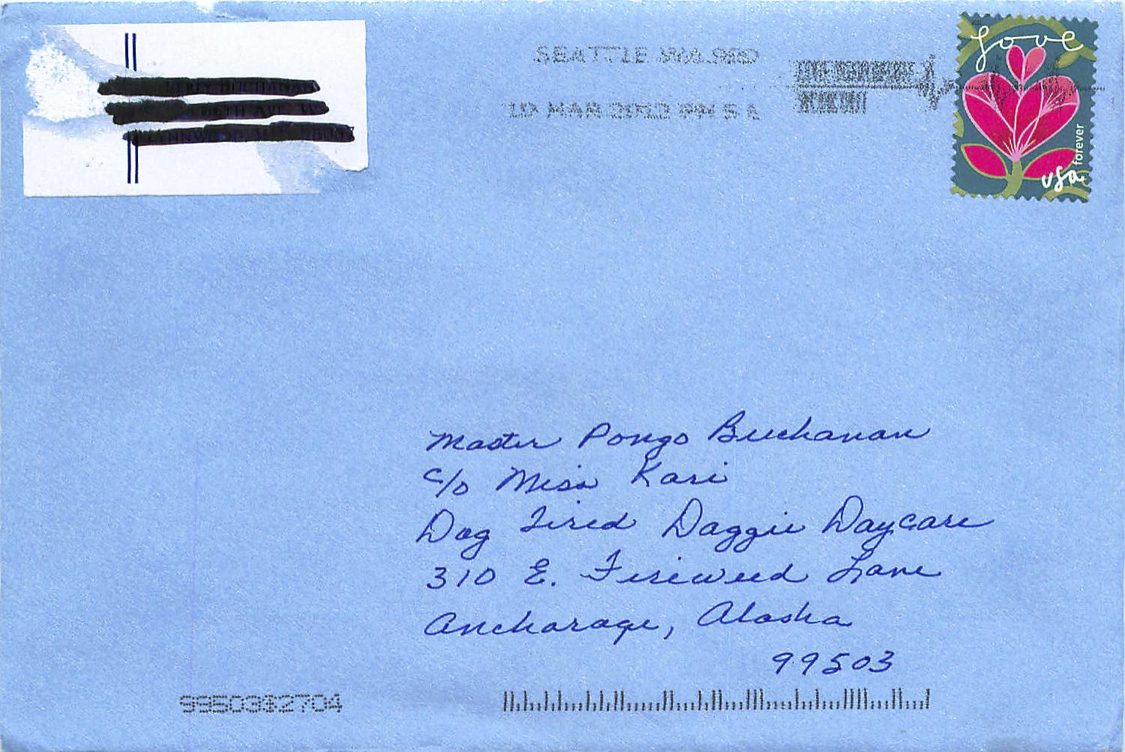 SEATTLE WA 980
10 MAR 2012 PM 5 L
love
forever
usa
Master Pongo Buchanan
c/o Miss Kari
Dog Tired Doggie Daycare
310 E. Fireweed Lane
Anchorage, Alaska
99503
99503$2704